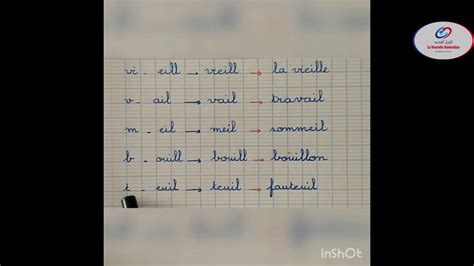 La Nouvelle Génération
vi - eill → vieill → la vieille
v - ail → vail → travail
m - eil → meil → sommeil
b - ouill → bouill → bouillon
t - euil → teuil → fauteuil
InShOt